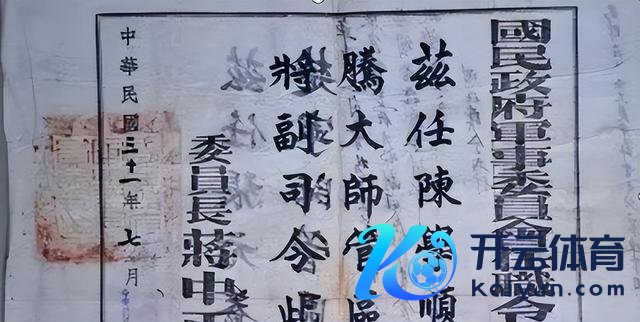 國民政府軍事委員會職令
茲任陳學順
騰大師管區
將副司令此
委員長蔣中正
中華民國三十一年七月
开云体育
kaiyun.com